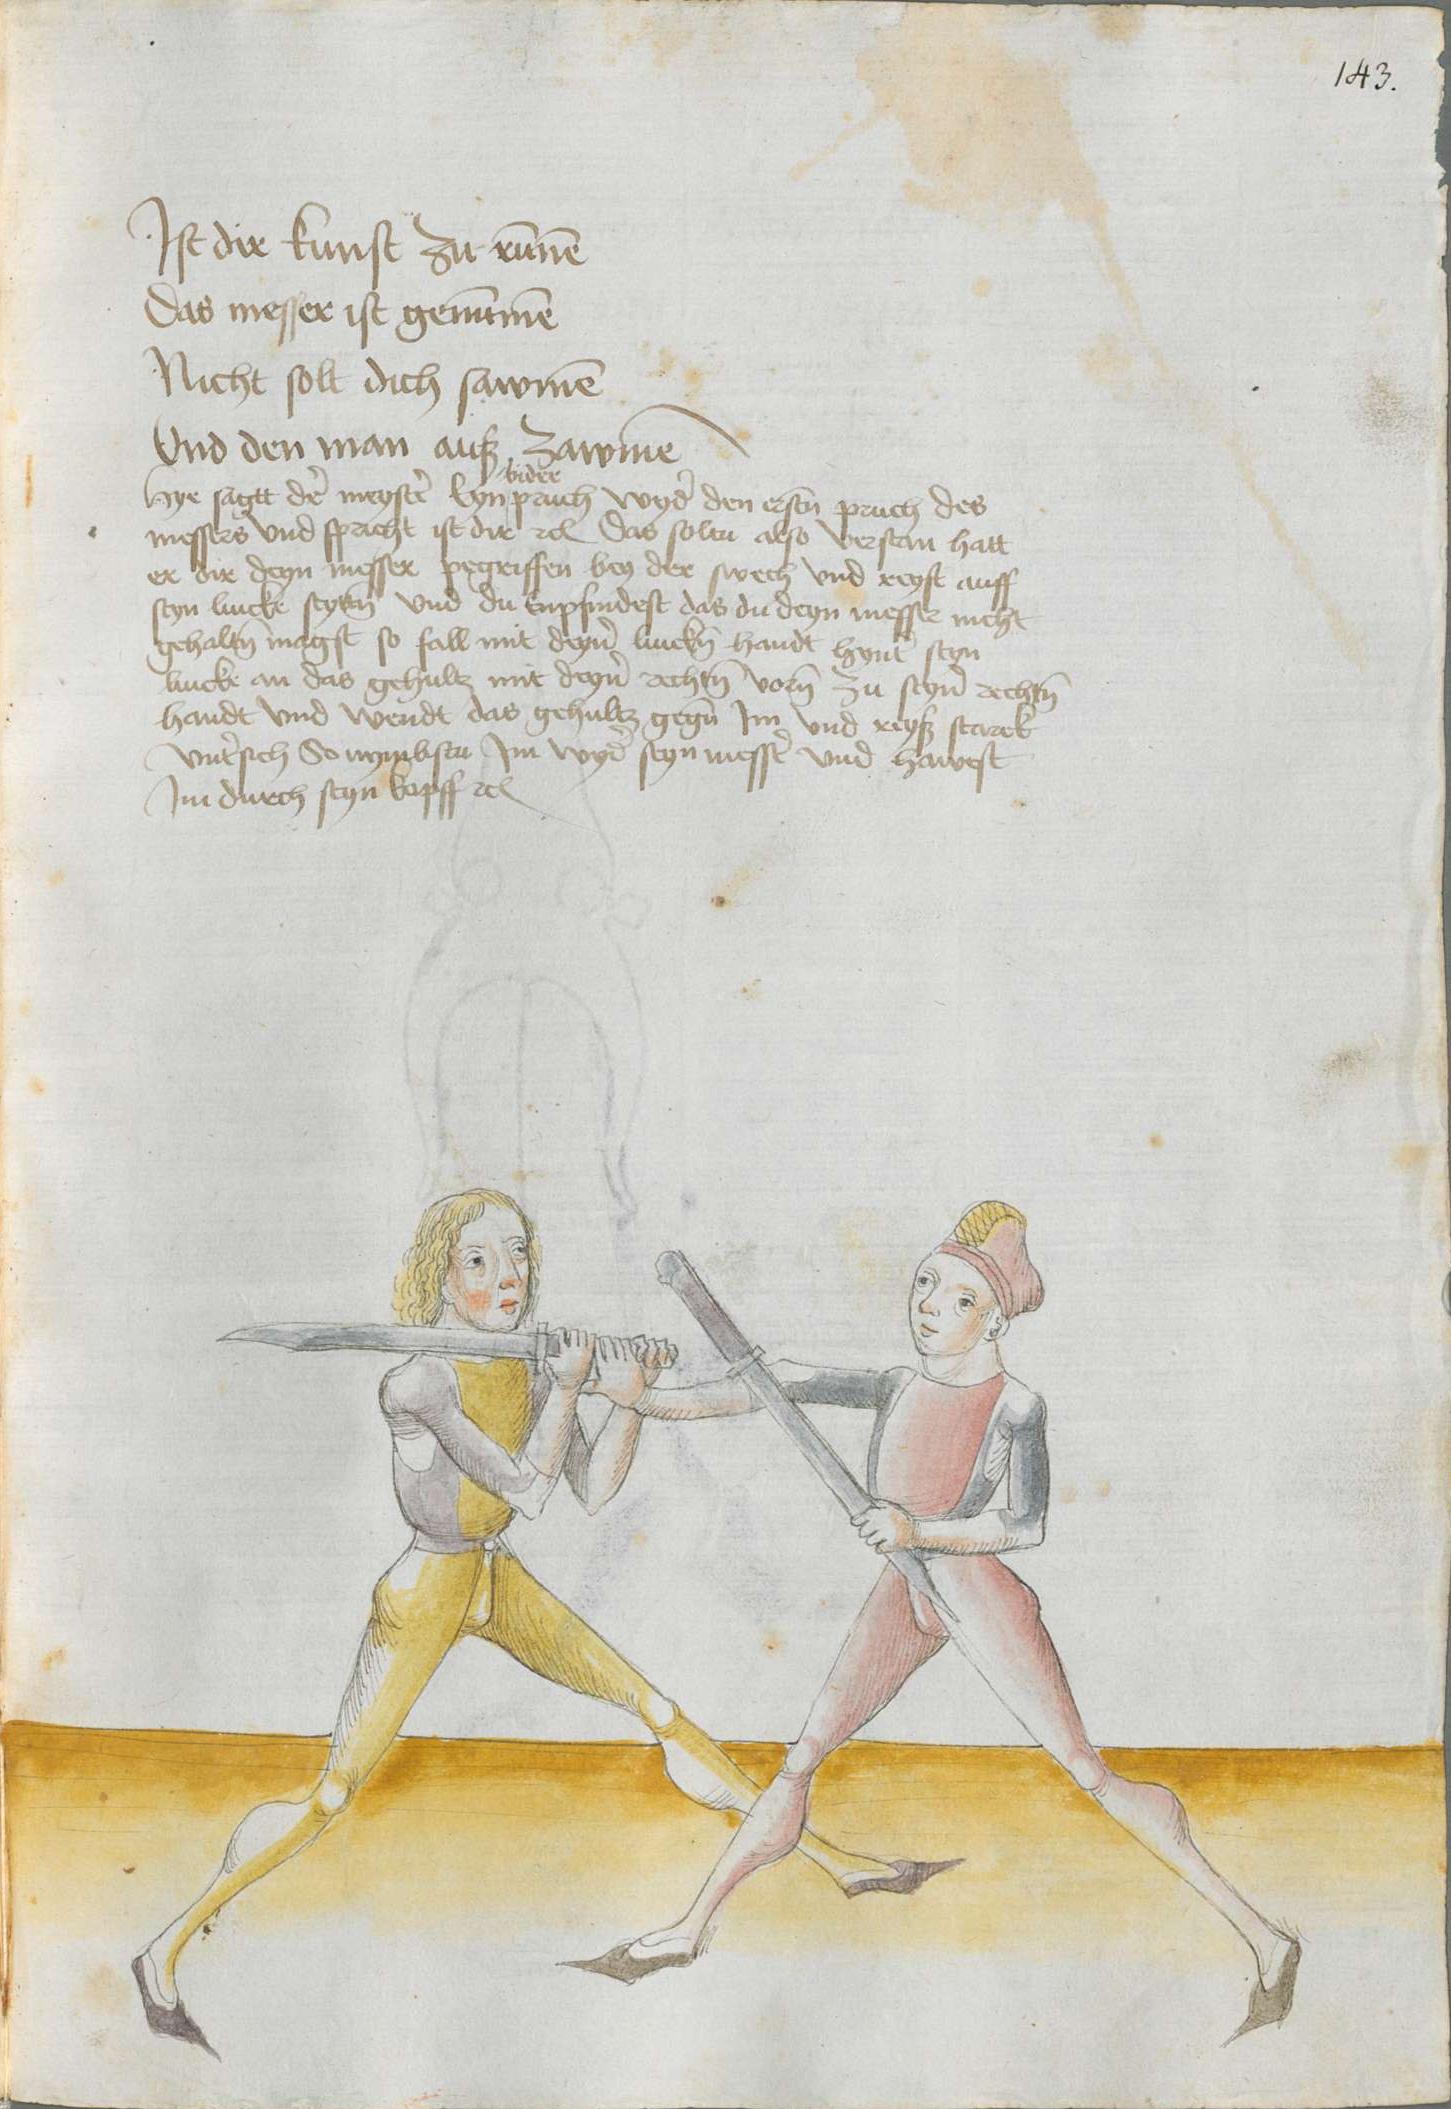 143.
Ist dir kunst zu rũnẽ
Das messer ist genũmẽ
Nicht solt dich sawmẽ
Vnd den man auß zawmẽ
wider
Hye sagtt der̃ meyster̃ eyn pruch wyder̃ den erstñ pruch des
messers vnd spricht ist dir ꝛcͣ Das soltu also verstan hatt
er dir deyn messer pegriffen bey der swech vnd reyst auff
seyn lincke seyttñ vnd du enpfindest das du deyn messer nicht
gehaltñ magst so fall mit deyner̃ linckñ handt hynter̃ seyn
lincke an das gehultz mit deyner̃ rechtñ vorñ zu seyner̃ rechtñ
handt vnd wendt das gehultz gegñ Im vnd reyß starck
vnter̃sich So nymbstu Im wyder̃ seyn messer̃ vnd hawest
Im durch seyn kopff ꝛcͣ